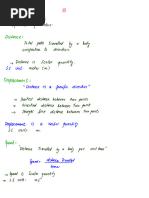 Distance:
Total path travelled by a body
irrespective to direction.
→ Distance is Scalar quantity.
S.I unit meter (m)
Displacement:
"Distance in a specific direction"
→ Shortest distance between two points
→ Straight line distance between two points
Displacement is a vector quantity
S.I unit: m
Speed:
Distance travelled by a body per unit time"
Speed = Distance travelled
time
→ Speed is Scalar quantity
→ S.I unit: ms⁻¹